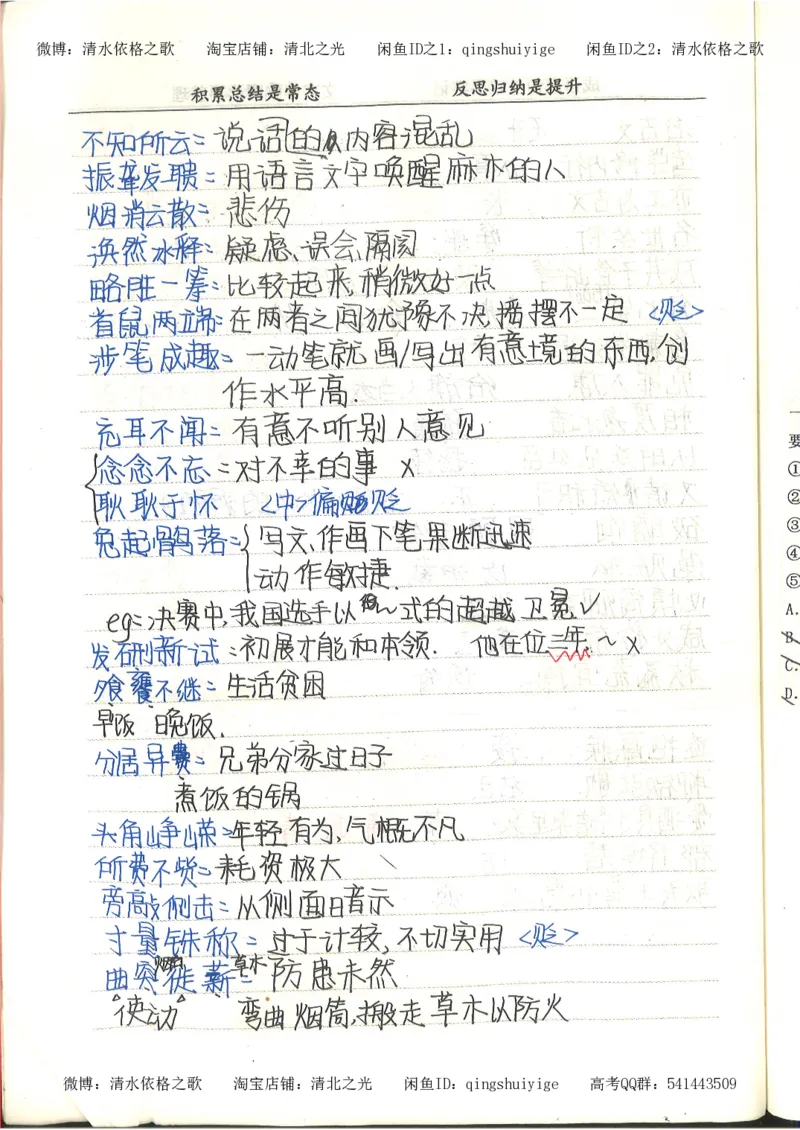 微博：清水依格之歌 淘宝店铺：清北之光 闲鱼ID之1：qingshuiyige 闲鱼ID之2：清水依格之歌
积累总结是常态 反思归纳是提升
不知所云=说话的内容混乱
振聋发聩=用语言文字唤醒麻木的人
烟消云散=悲伤
涣然冰释=疑虑、误会、隔阂
略胜一筹=比较起来,稍微好一点
首鼠两端=在两者之间犹豫不决,摇摆不一定 <贬>
涉笔成趣=一动笔就画/写出有意境的东西,创
作水平高.
充耳不闻=有意不听别人意见
念念不忘=对不幸的事 x
耿耿于怀 <中>偏贬
兔起鹘落={写文、作画下笔果断迅速
动作敏捷.
eg=决赛中,我国选手以~式的超越卫冕.✓
发硎新试=初展才能和本领. 他在位三年,~ x
飧饔不继=生活贫困
早饭 晚饭.
分居异爨=兄弟分家过日子
煮饭的锅
头角峥嵘=年轻有为,气概不凡
所费不赀=耗资极大
旁敲侧击=从侧面暗示
寸量铢称=过于计较,不切实用 <贬>
烟囱 草木
曲突徙薪=防患未然
使动 弯曲烟筒,搬走草木以防火
要
①
②
③
④
⑤
A.
B.
C.
D.
微博：清水依格之歌 淘宝店铺：清北之光 闲鱼ID：qingshuiyige 高考QQ群：541443509